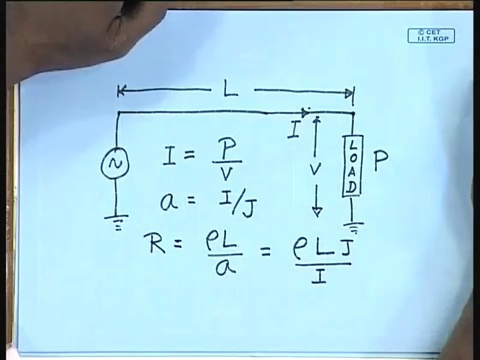 © CET
I.I.T. KGP
L
I
V
LOAD
P
~
I = P/V
a = I/J
R = ρL/a = ρLJ/I